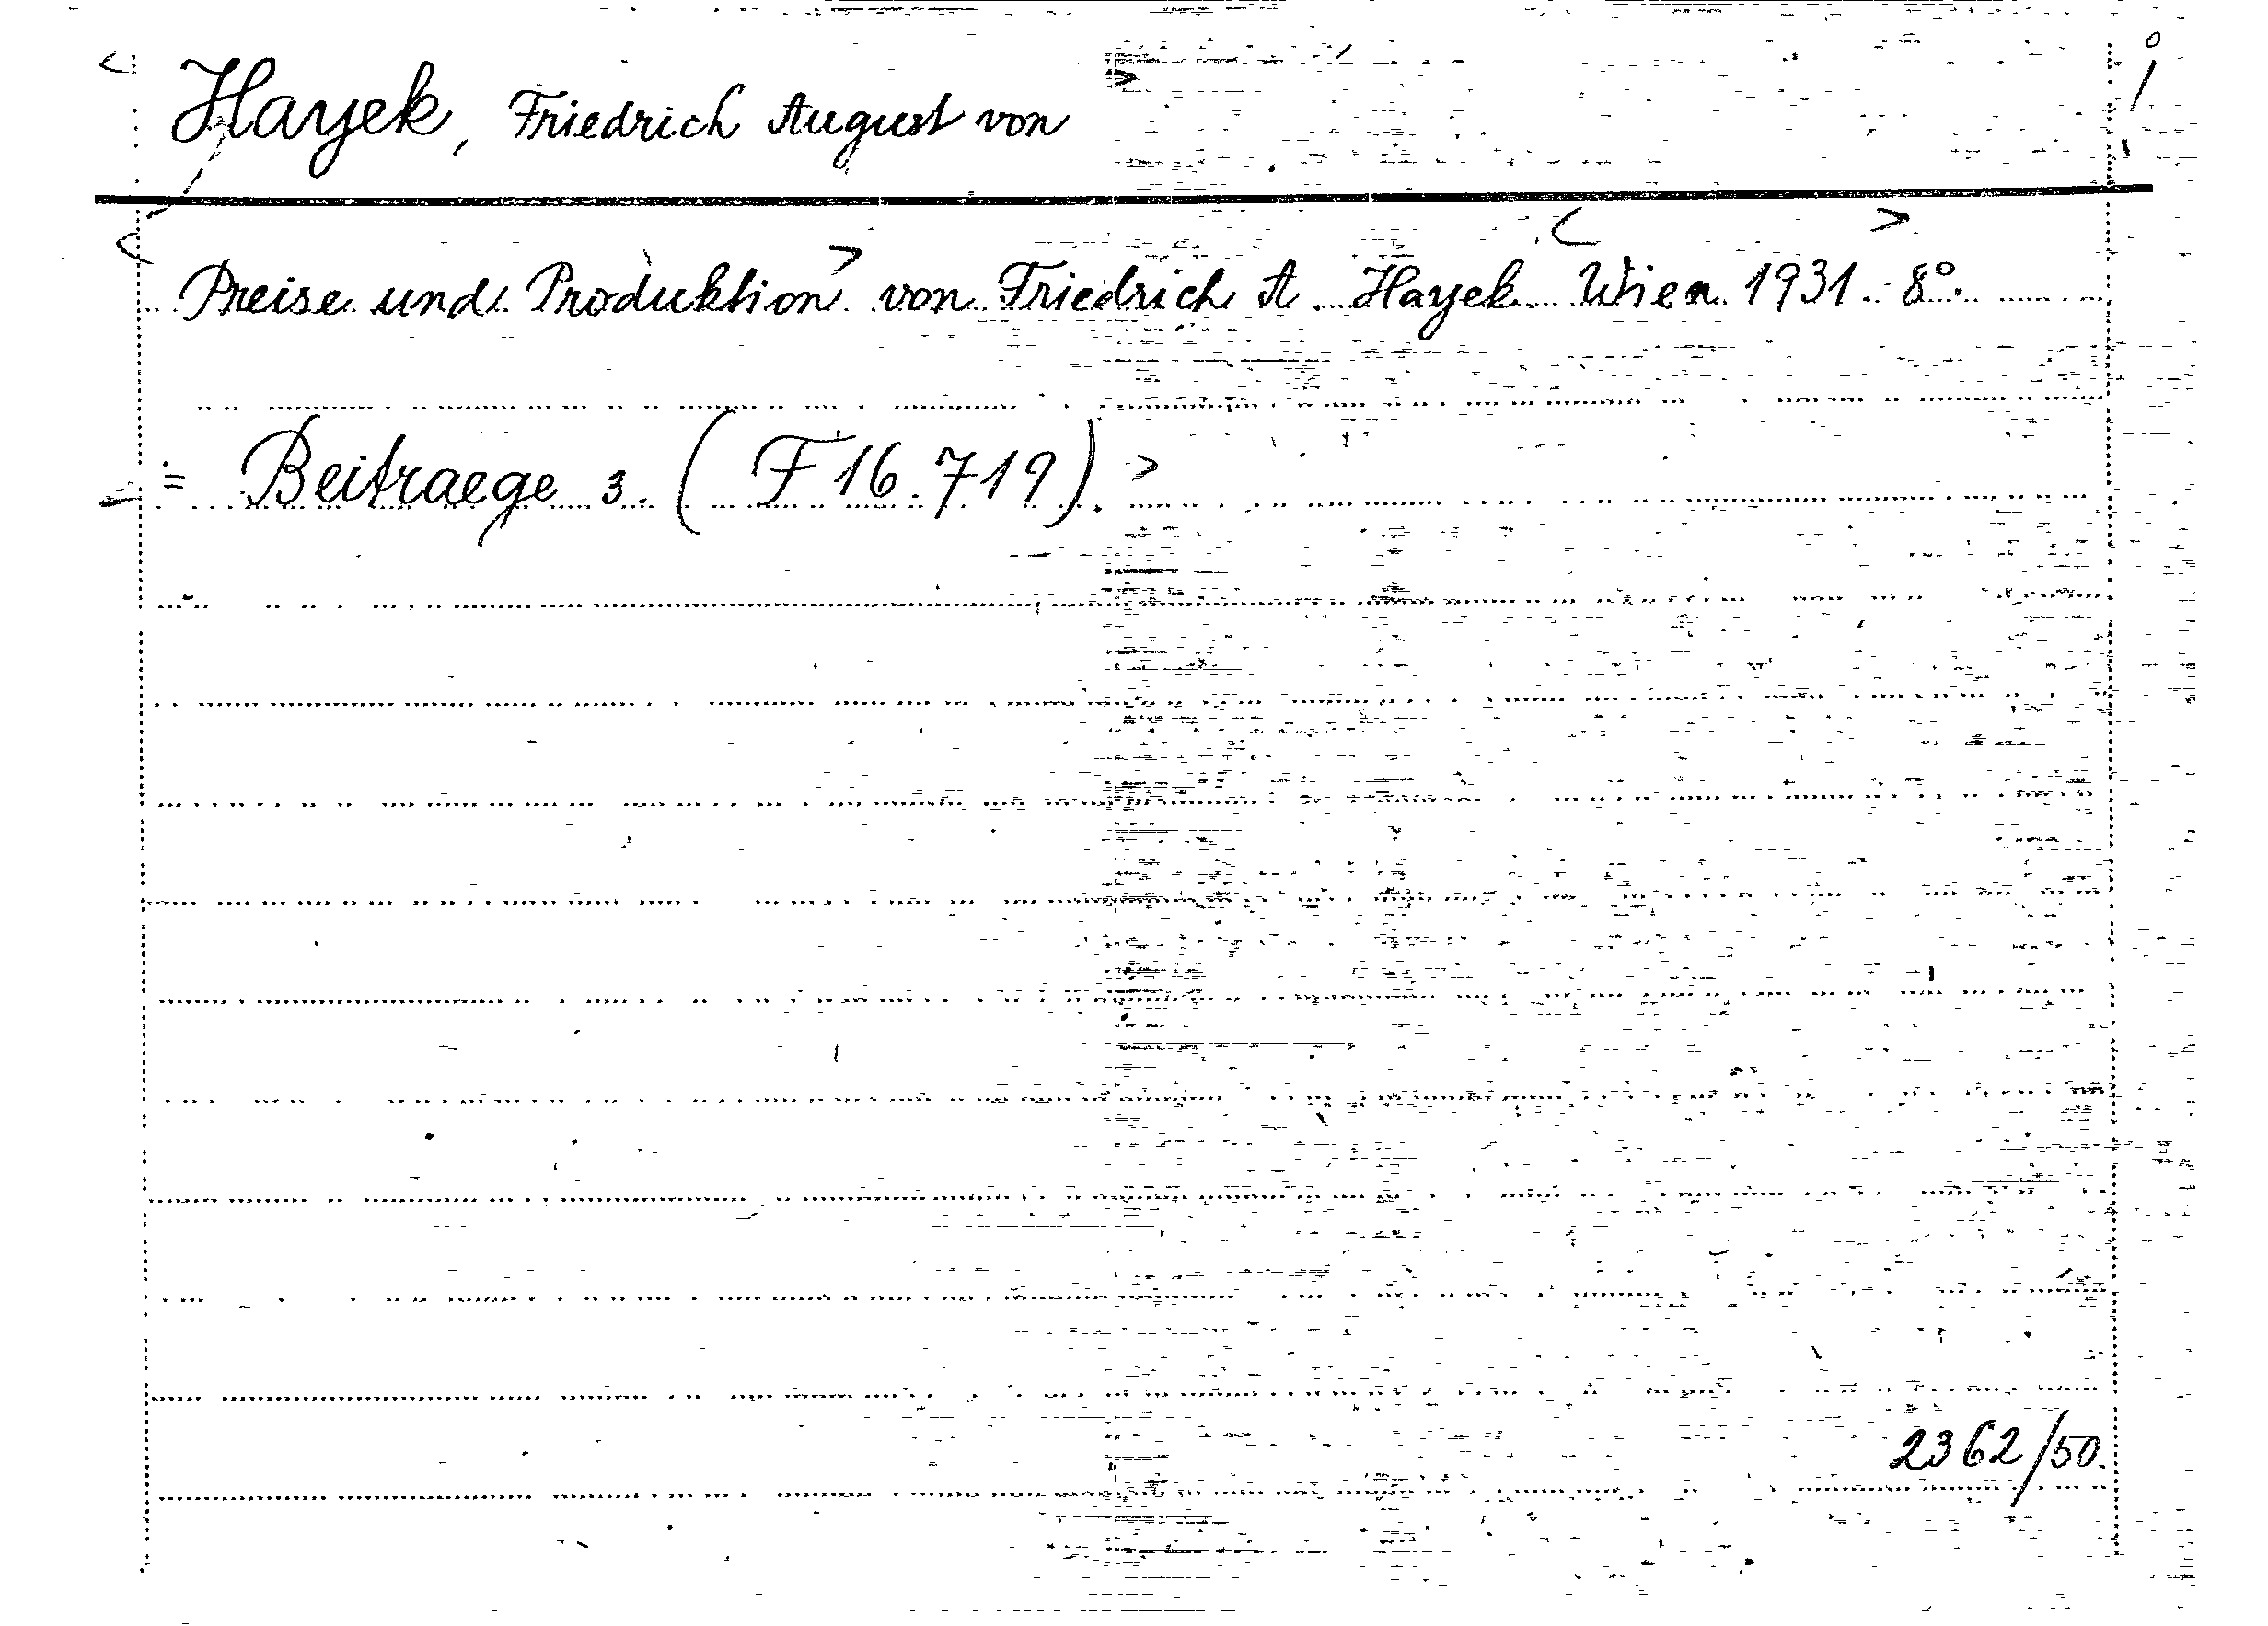 Hayek, Friedrich August von
Preise und Produktion von Friedrich A. Hayek. Wien 1931. 8°.
= Beitraege 3. (F 16.719).
2362/50.